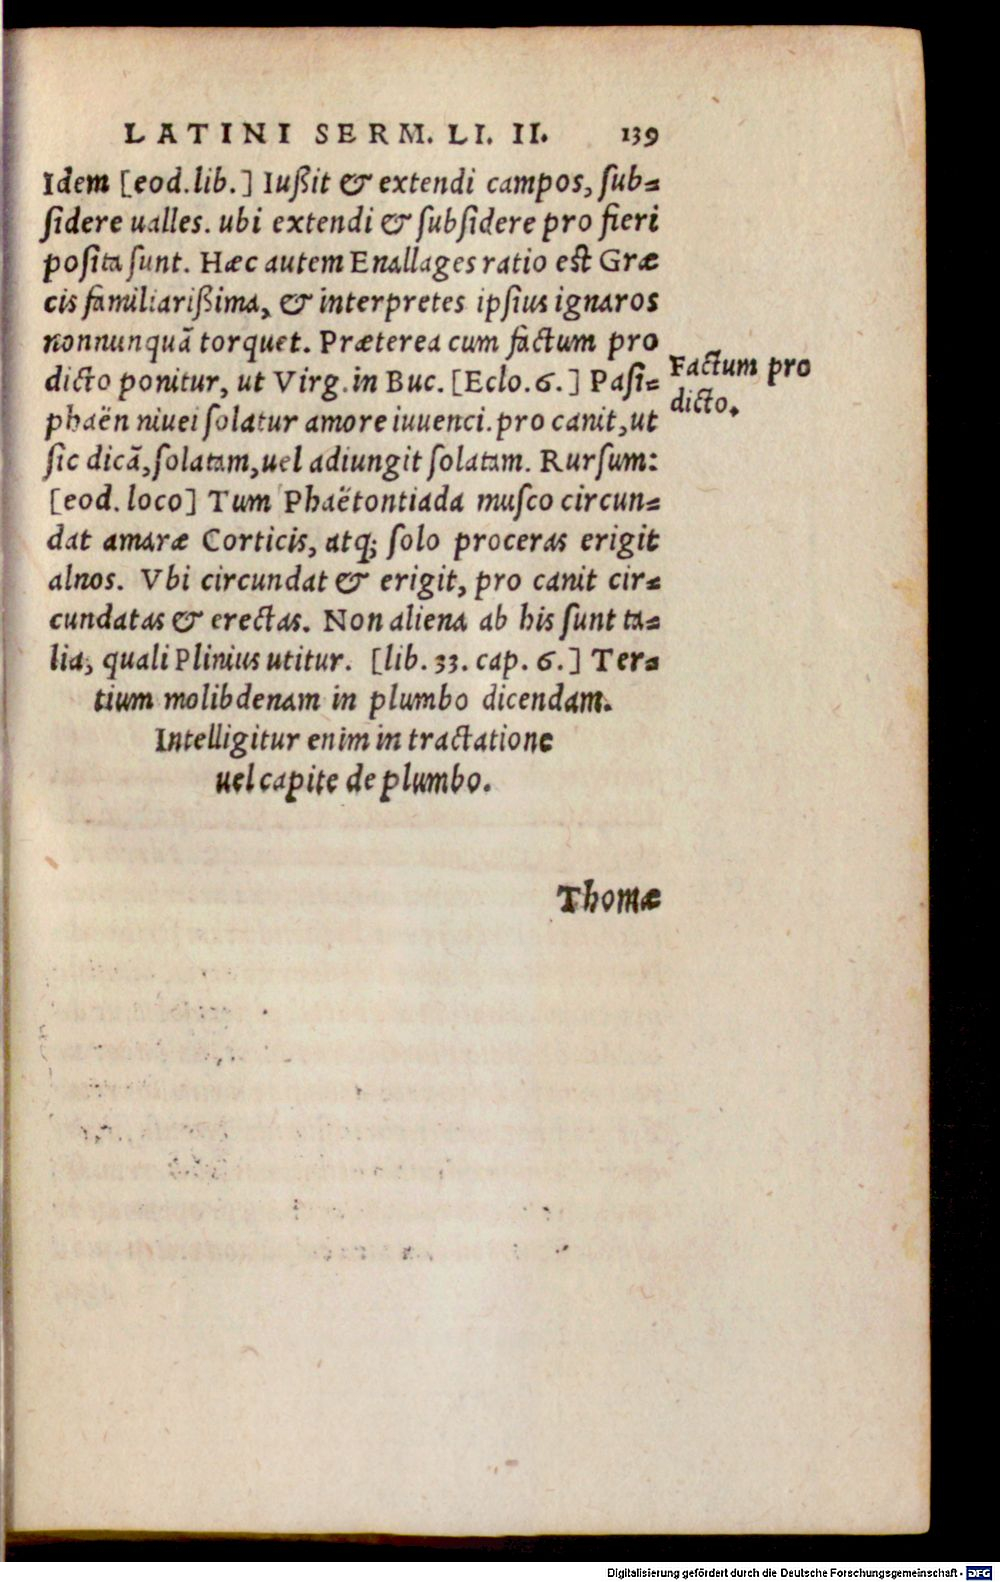 LATINI SERM. LI. II. 139
Idem [eod.lib.] Iußit & extendi campos, sub=
sidere ualles. ubi extendi & subsidere pro fieri
posita sunt. Hæc autem Enallages ratio est Græ
cis familiarißima, & interpretes ipsius ignaros
nonnunquã torquet. Præterea cum factum pro
dicto ponitur, ut Virg. in Buc. [Eclo. 6.] Pasi=
phaën niuei solatur amore iuuenci. pro canit, ut
sic dicã, solatam, uel adiungit solatam. Rursum:
[eod. loco] Tum Phaëtontiada musco circun=
dat amaræ Corticis, atq; solo proceras erigit
alnos. Vbi circundat & erigit, pro canit cir=
cundatas & erectas. Non aliena ab his sunt ta=
lia, quali Plinius utitur. [lib. 33. cap. 6.] Ter=
tium molibdenam in plumbo dicendam.
Intelligitur enim in tractatione
uel capite de plumbo.
Factum pro
dicto.
Thomæ
Digitalisierung gefördert durch die Deutsche Forschungsgemeinschaft - DFG